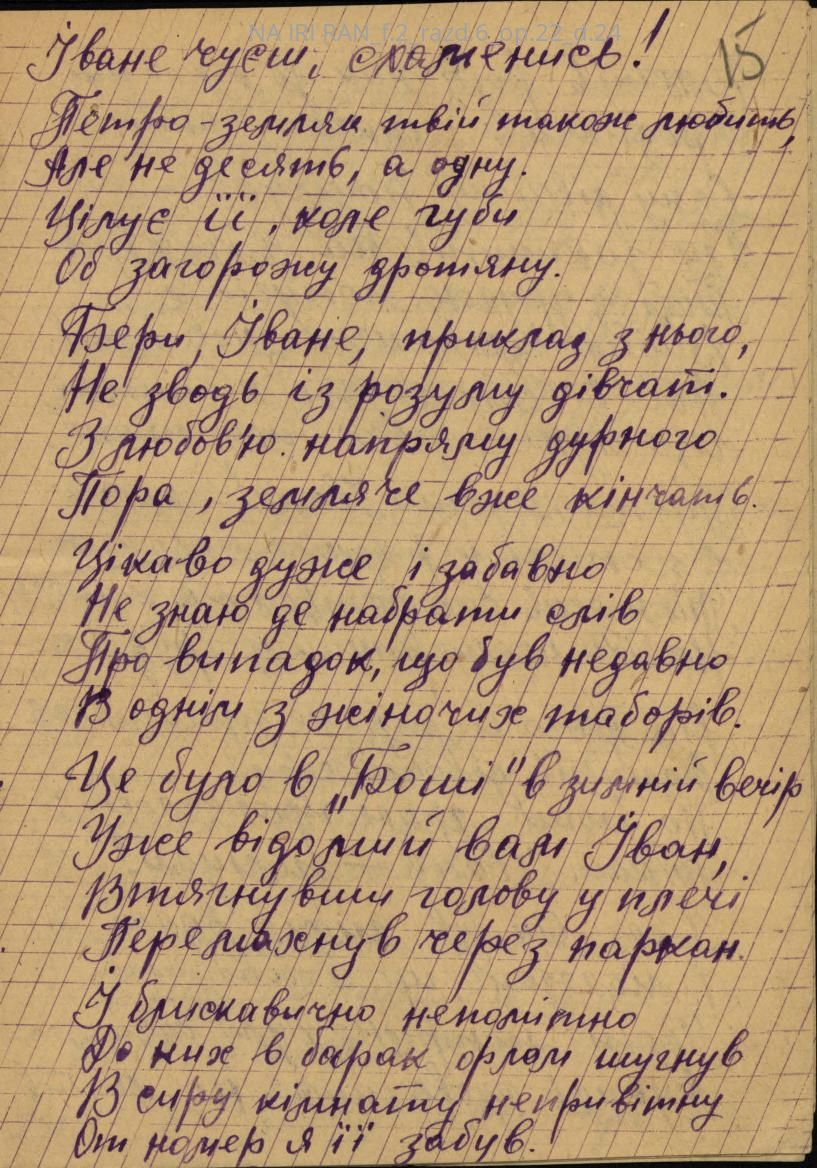 NA IRI RAN f.2 razd.6 op.22 d.24
15
Іване чуєш, схаменись!
Петро-земляк твій також любить,
Але не десять, а одну.
Цілує її, коле губи
Об загорожу дротяну.
Бери, Іване, приклад з нього,
Не зводь із розуму дівчат.
З любов'ю напряму дурного
Пора, земляче вже кінчать.
Цікаво дуже і забавно
Не знаю де набрати слів
Про випадок, що був недавно
В однім з жіночих таборів.
Це було в „Боші" в зимній вечір
Уже відомий вам Іван,
Втягнувши голову у плечі
Перемахнув через паркан.
І блискавично непомітно
До них в барак орлом шугнув
В сиру кімнату непривітну
От номер я її забув.